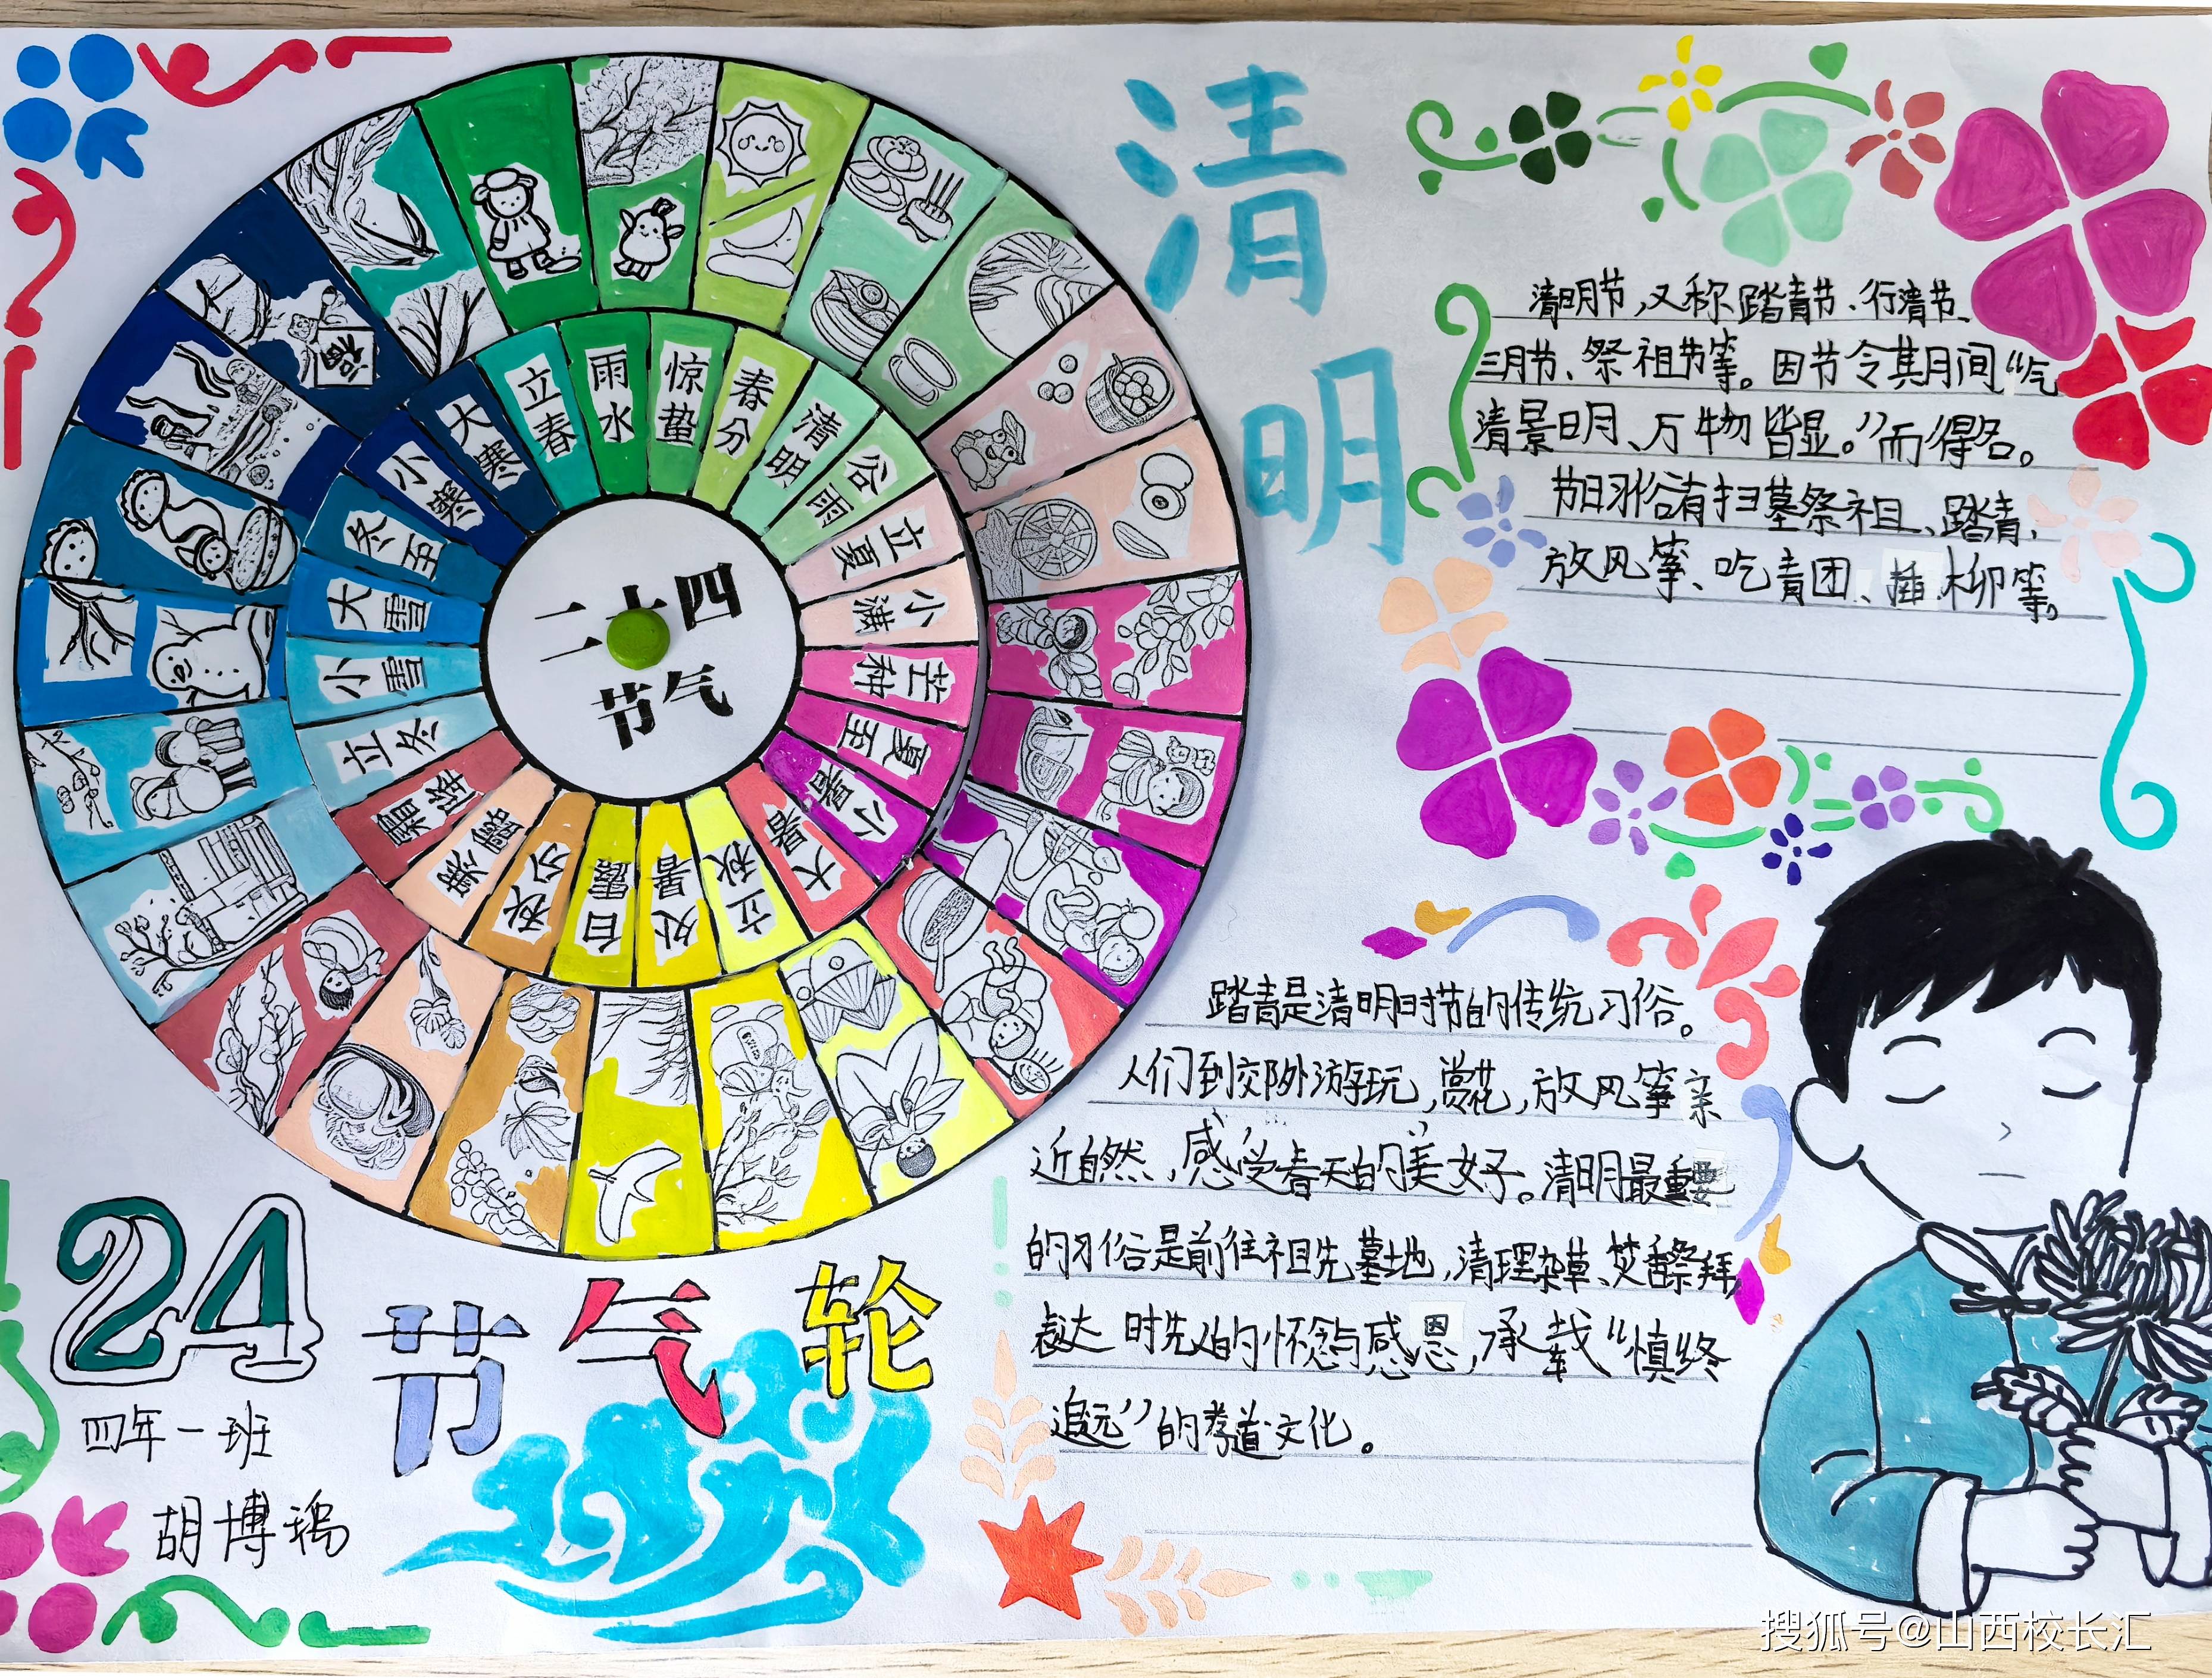 清明
清明节,又称踏青节、行清节、
三月节、祭祖节等。因节令其月间“气
清景明、万物皆显。”而得名。
节日习俗有扫墓祭祖、踏青,
放风筝、吃青团、插柳等。
踏青是清明时节的传统习俗。
人们到郊外游玩,赏花,放风筝亲
近自然,感受春天的美好。清明最重要
的习俗是前往祖先墓地,清理杂草、焚香祭拜,
表达时先人的怀念与感恩,承载“慎终
追远”的孝道文化。
二十四
节气
立春
雨水
惊蛰
春分
清明
谷雨
立夏
小满
芒种
夏至
小暑
大暑
立秋
处暑
白露
秋分
寒露
霜降
立冬
小雪
大雪
冬至
小寒
大寒
福
24
节气轮
四年一班
胡博
搜狐号@山西校长汇